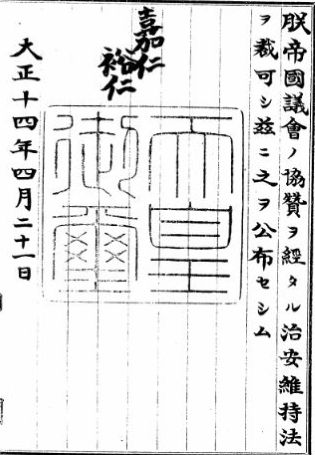 朕帝國議會ノ協贊ヲ經タル治安維持法
ヲ裁可シ玆ニ之ヲ公布セシム
嘉仁
裕仁
天皇
御璽
大正十四年四月二十一日